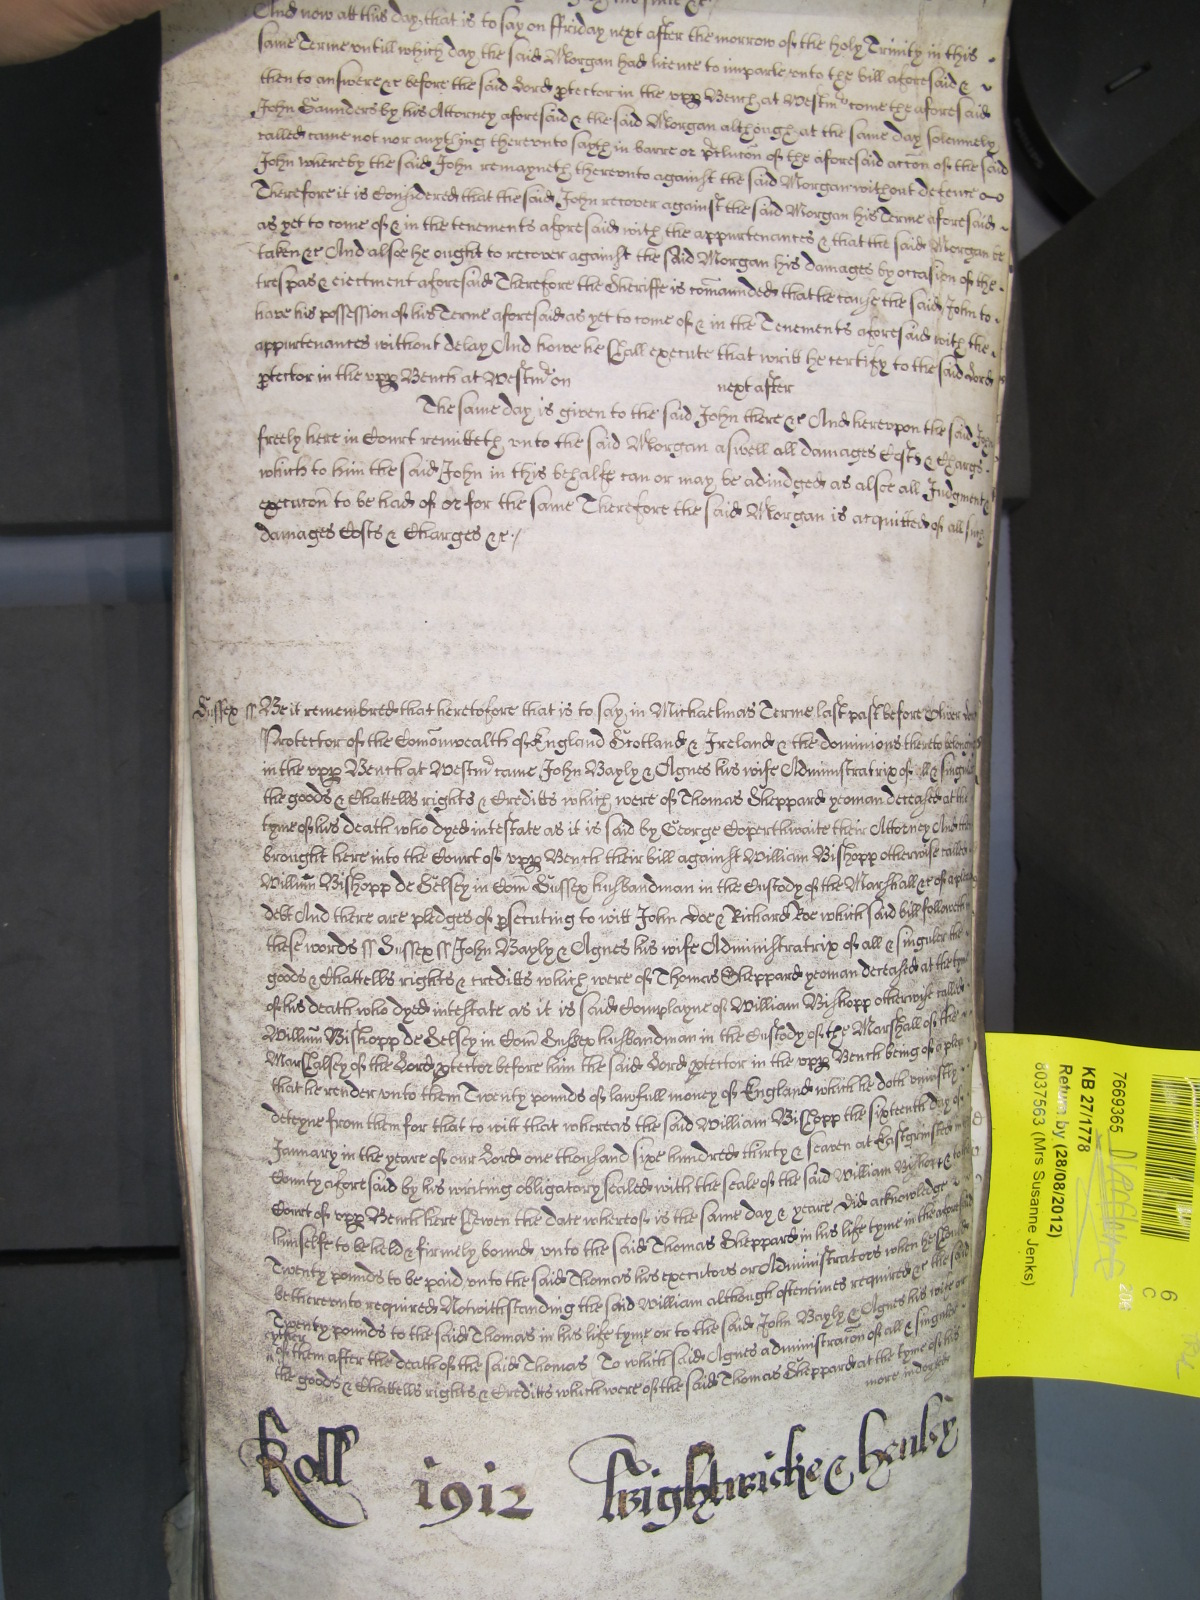 And now att this day, that is to say on ffriday next after the morrow of the holy Trinity in this
same Terme untill which day the said Morgan had licence to imparle unto the bill aforesaid &
then to answere &c before the said Lord ptector in the upp Bench at Westmr come the aforesaid
John Saunders by his Attorney aforesaid & the said Morgan although at the same day solemnely
called came not nor anything thereunto sayth in barre or of the aforesaid accon of the said
John whereby the said John remayneth thereunto against the said Morgan without defence
Therefore it is Considered that the said John recover against the said Morgan his Terme aforesaid
as yet to come of & in the tenements aforesaid with the appurtenances & that the said Morgan be
taken &c And alsoe he ought to recover against the said Morgan his damages by occasion of the
trespas & ejectment aforesaid Therefore the Sheriffe is comaunded that he cause the said John to
have his possession of his Terme aforesaid as yet to come of & in the Tenements aforesaid with the
appurtenances without delay And howe he shall execute that writt he certify to the said Lord
ptector in the upp Bench at Westmr on next after
The same day is given to the said John there &c And hereupon the said John
freely here in Court remitteth unto the said Morgan aswell all damages Costs & Chargs
which to him the said John in this behalfe can or may be adiudged as alsoe all Judgment &
execucon to be had of or for the same Therefore the said Morgan is acquitted of all
damages Costs & Charges &c
Sussex ss Be it remembred that heretofore that is to say, in Michaelmas Terme last past before Oliver Lord
Protector of the Comonwealth of England Scotland & Ireland & the dominions thereto belonging
in the upp Bench at Westmr came John Bayly & Agnes his wife Administratrix of all & singuler
the goods & Chattells rights & Creditts which were of Thomas Sheppard yeoman deceased at the
tyme of his death who dyed intestate as it is said by George Coperthwaite their Attorney And
brought here into the Court of upp Bench their bill against William Bishopp otherwise called
Willum Bishopp de Selsey in Com Sussex husbandman in the Custody of the Marshall &c of a plea
debt And there are pledges of psecuting to witt John Doe & Richard Roe which said bill followeth
these words ss Sussex ss John Bayly & Agnes his wife Administratrix of all & singuler the
goods & Chattells rights & creditts which were of Thomas Sheppard yeoman deceased at the tyme
of his death who dyed intestate as it is said Complayne of William Bishopp otherwise called
Willum Bishopp de Selsey in Com Sussex husbandman in the Custody of the Marshall of the
Marshalsey of the Lord ptector before him the said Lord ptector in the upp Bench being of a plea
that he render unto them Twenty pounds of lawfull money of England which he doth uniustly
deteyne from them for that to witt that whereas the said William Bishopp the sixteenth day of
January in the yeare of our Lord one thousand sixe hundred thirty & seaven at Eastgrinsteed in
County aforesaid by his writing obligatory sealed with the seale of the said William Bishopp & to the
Court of upp Bench here shewen the date whereof is the same day & yeare did acknowledge
himselfe to be held & firmely bound unto the said Thomas Sheppard in his life tyme in the aforesaid
Twenty pounds to be paid unto the said Thomas his executors or Administrators when he should
be thereunto required Notwithstanding the said William although oftentimes required &c the said
Twenty pounds to the said Thomas in his life tyme or to the said John Bayly & Agnes his wife or
eyther
of them after the death of the said Thomas To which said Agnes administracon of all & singuler
the goods & Chattells rights & Creditts which were of the said Thomas Sheppard at the tyme of his
more indorsed
Roll 1912 Wightwicke & Henley
7669365
KB 27/1778
Return by (28/08/2012)
8037563 (Mrs Susanne Jenks)
6
C